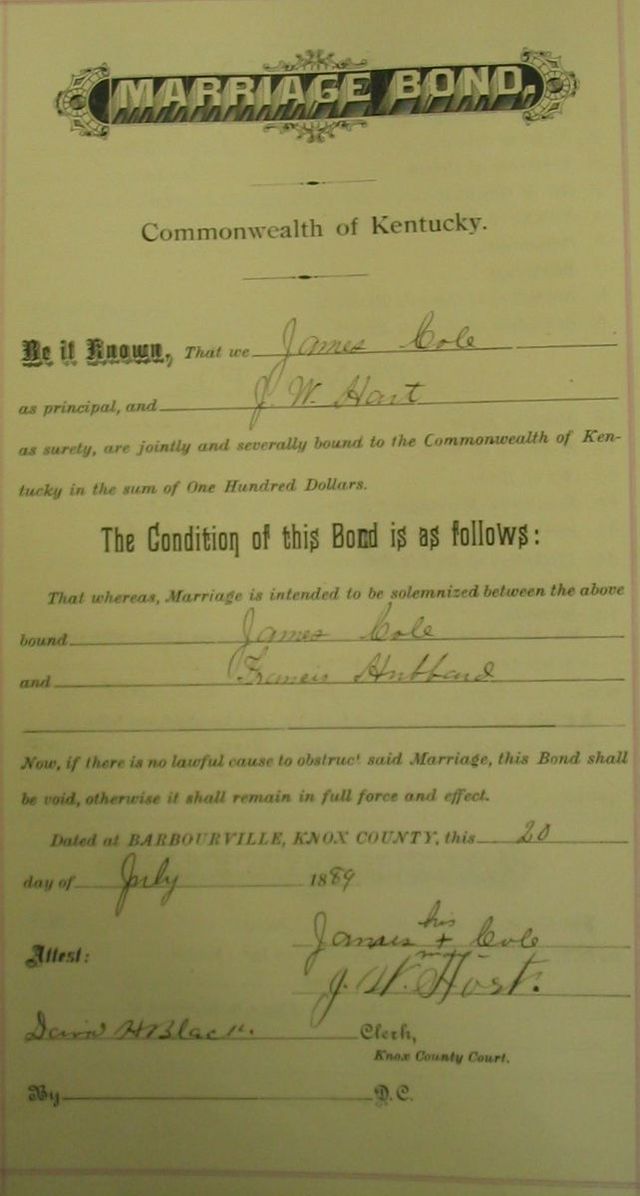 MARRIAGE BOND.
Commonwealth of Kentucky.
Be it Known, That we James Cole
as principal, and J. W. Hart
as surety, are jointly and severally bound to the Commonwealth of Ken-
tucky in the sum of One Hundred Dollars.
The Condition of this Bond is as follows:
That whereas, Marriage is intended to be solemnized between the above
bound James Cole
and Francis Hubbard
Now, if there is no lawful cause to obstruct said Marriage, this Bond shall
be void, otherwise it shall remain in full force and effect.
Dated at BARBOURVILLE, KNOX COUNTY, this 20
day of July 1889
his
James + Cole
Attest:
J. W.
Black Clerk,
Knox County Court.
By D.C.